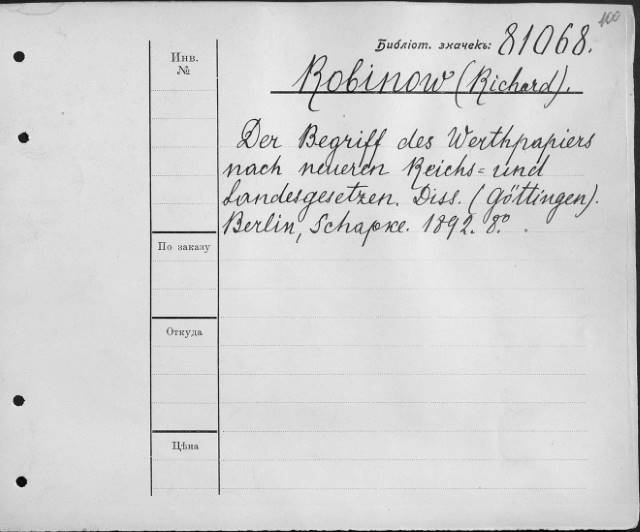 100
Библіот. значекъ: 81068.
Инв.
№
Robinow (Richard).
Der Begriff des Werthpapiers
nach neueren Reichs= und
Landesgesetzen. Diss. (Göttingen).
Berlin, Schapke. 1892. 8.°
По заказу
Откуда
Цѣна